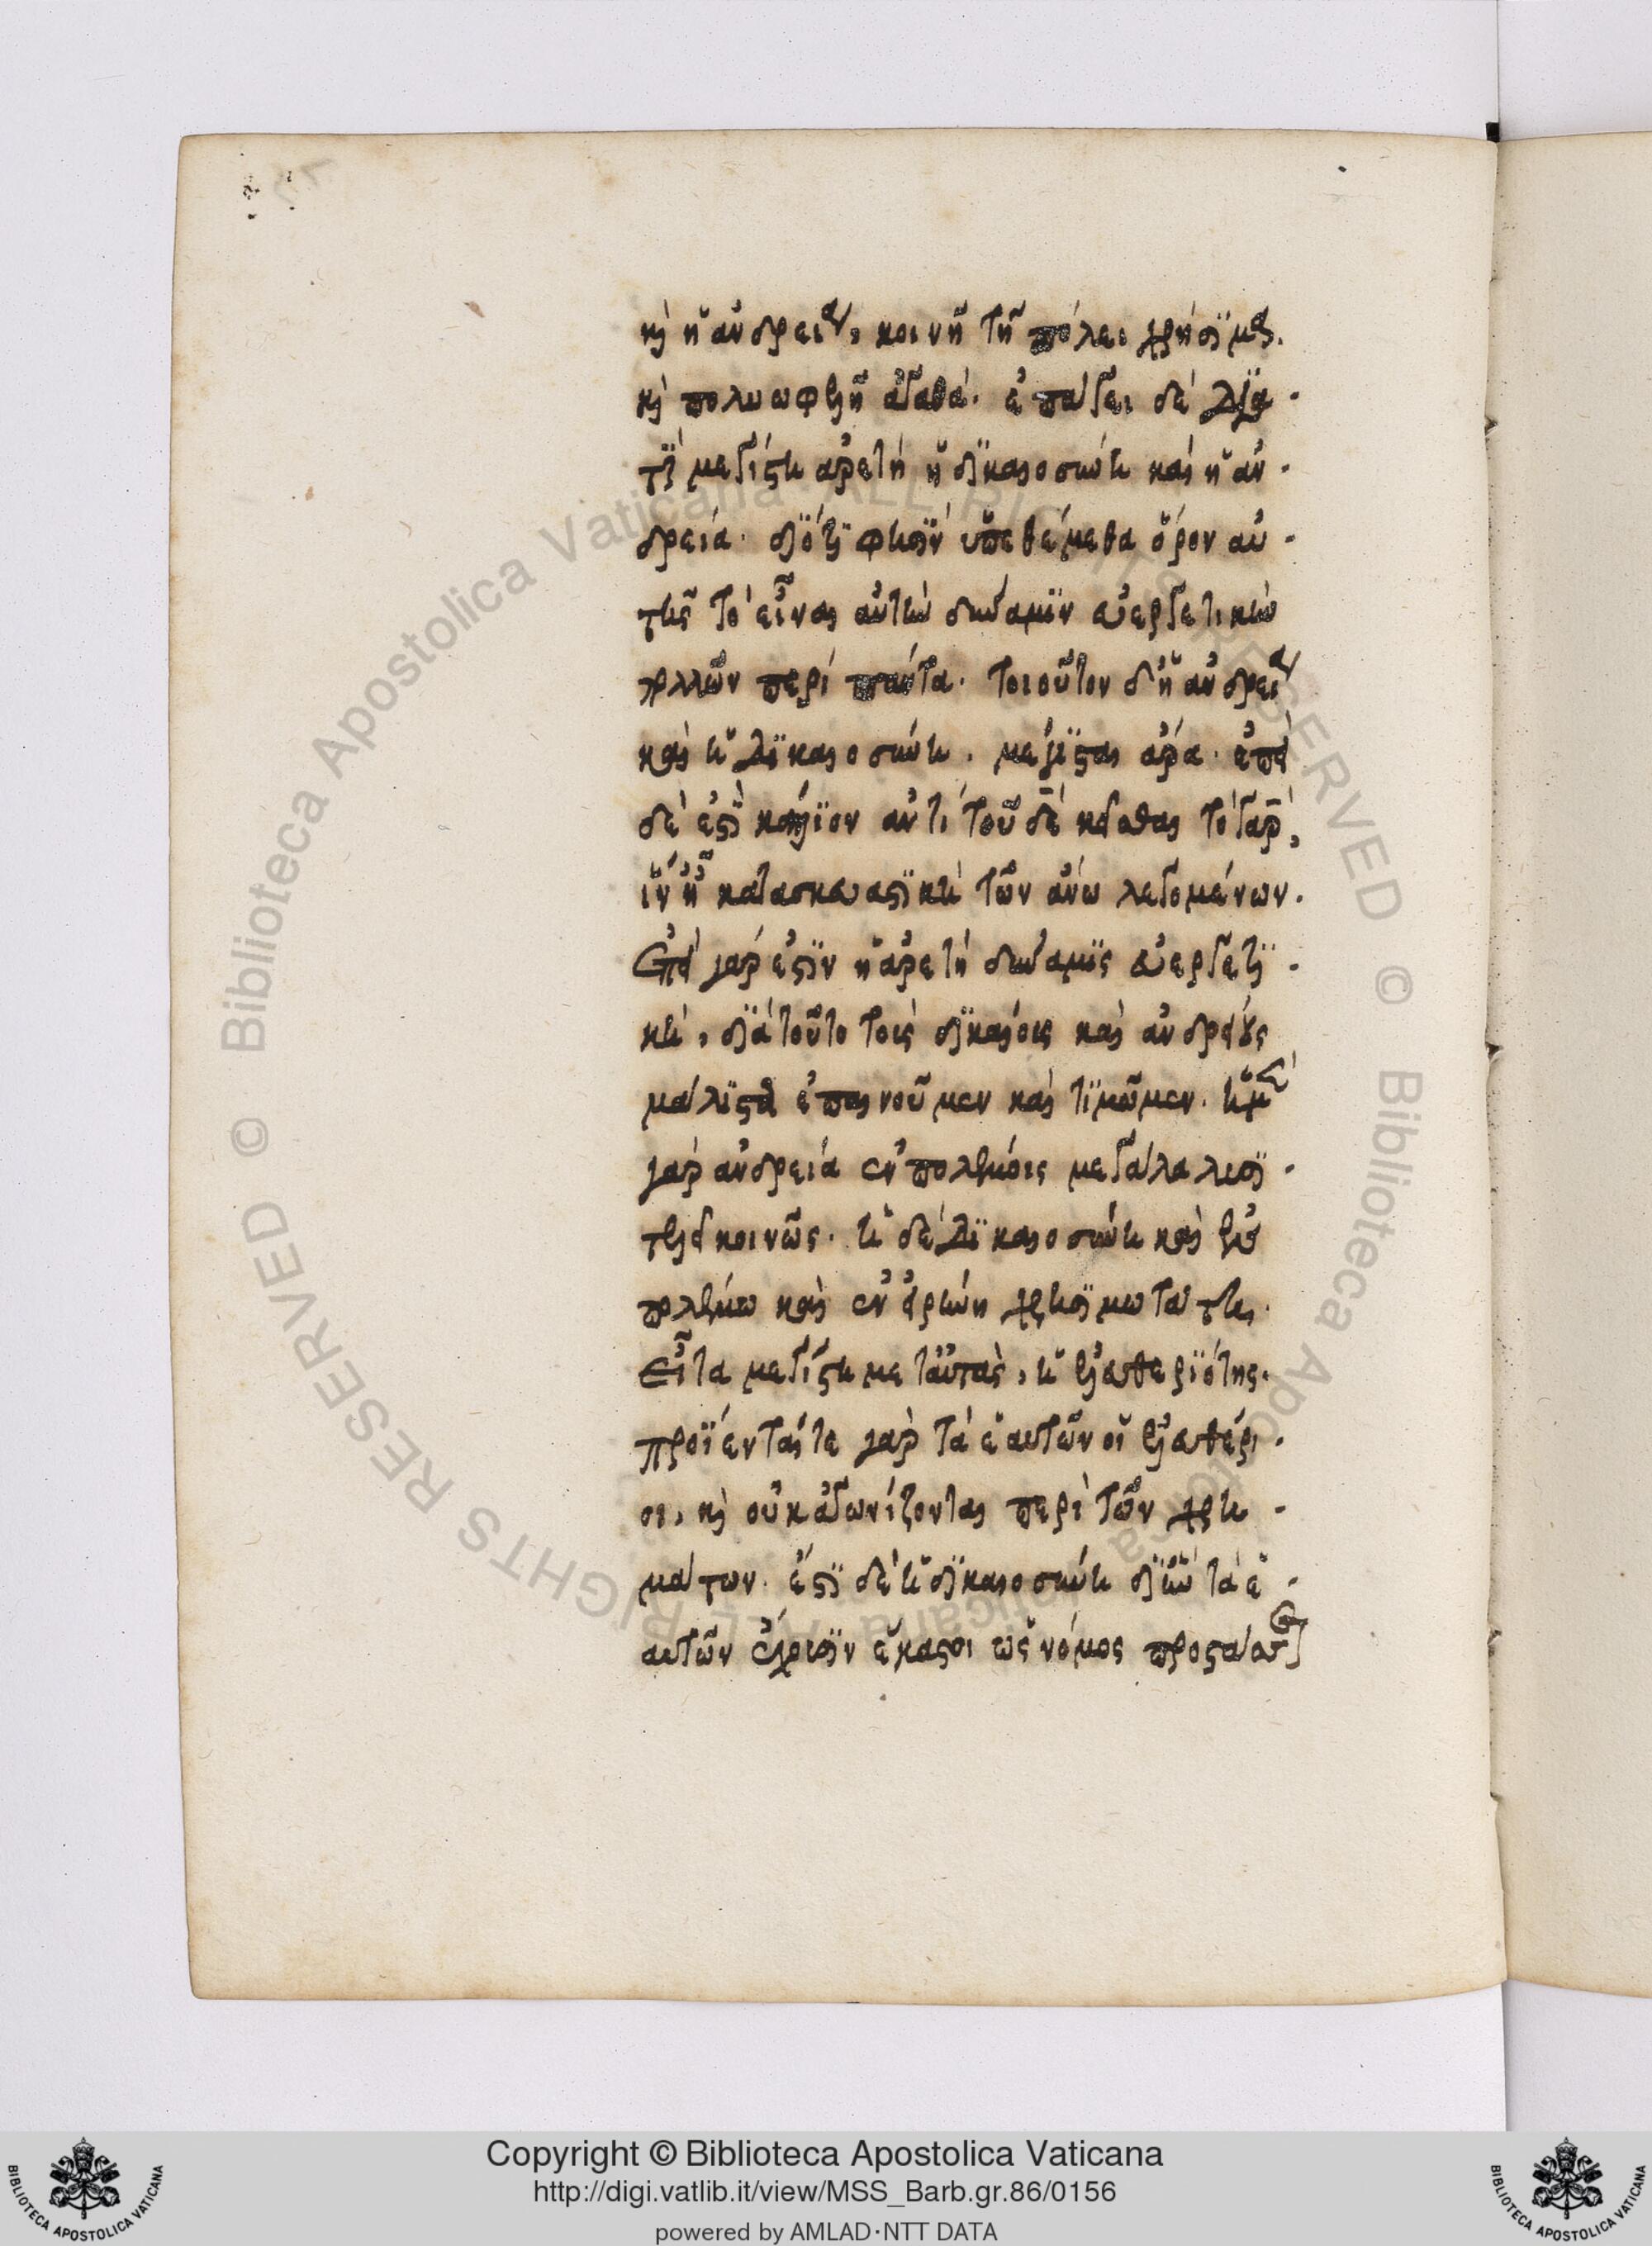 καὶ ἡ ἀνδρεία, κοινῇ τῇ πόλει χρήσιμα.
καὶ πολυωφελῆ ἀγαθά. ἐπάγει δὲ
μεγίστη ἀρετὴ ἡ δικαιοσύνη καὶ ἡ ἀν-
δρεία. διότι φησὶν ὑπεθέμεθα ὅρον αὐ-
τῆς τὸ εἶναι αὐτὴν δύναμιν εὐεργετικὴν
πολλῶν περὶ πάντα. τοιοῦτον δ' ἡ ἀνδρεία
καὶ ἡ δικαιοσύνη. μέγισται ἄρα. ἐπεὶ
δὲ ἐστὶ καίριον ἀντὶ τοῦ δὲ κεῖσθαι τὸ γὰρ,
ἵν' ᾖ κατασκευαστικὴ τῶν ἄνω λεγομένων.
Ἐπεὶ γάρ ἐστιν ἡ ἀρετὴ δύναμις εὐεργετι-
κὴ, διὰ τοῦτο τοὺς δικαίους καὶ ἀνδρείους
μάλιστα ἐπαινοῦμεν καὶ τιμῶμεν. ἡ μὲν
γὰρ ἀνδρεία ἐν πολέμοις μεγάλα λυσι-
τελεῖ κοινῶς. ἡ δὲ δικαιοσύνη καὶ ἐν
πολέμω καὶ ἐν εἰρήνη χρησιμωτάτη.
Εἶτα μεγίστη μετ' αὐτὰς, ἡ ἐλευθεριότης.
προΐενταί τε γὰρ τὰ ἑαυτῶν οἱ ἐλευθέρι-
οι, καὶ οὐκ ἀγωνίζονται περὶ τῶν χρη-
μάτων. ἔστι δὲ ἡ δικαιοσύνη δι' ἣν τὰ ἑ-
αυτῶν ἔχουσιν ἕκαστοι ὡς νόμος προστάττει
Copyright © Biblioteca Apostolica Vaticana
http://digi.vatlib.it/view/MSS_Barb.gr.86/0156
powered by AMLAD·NTT DATA